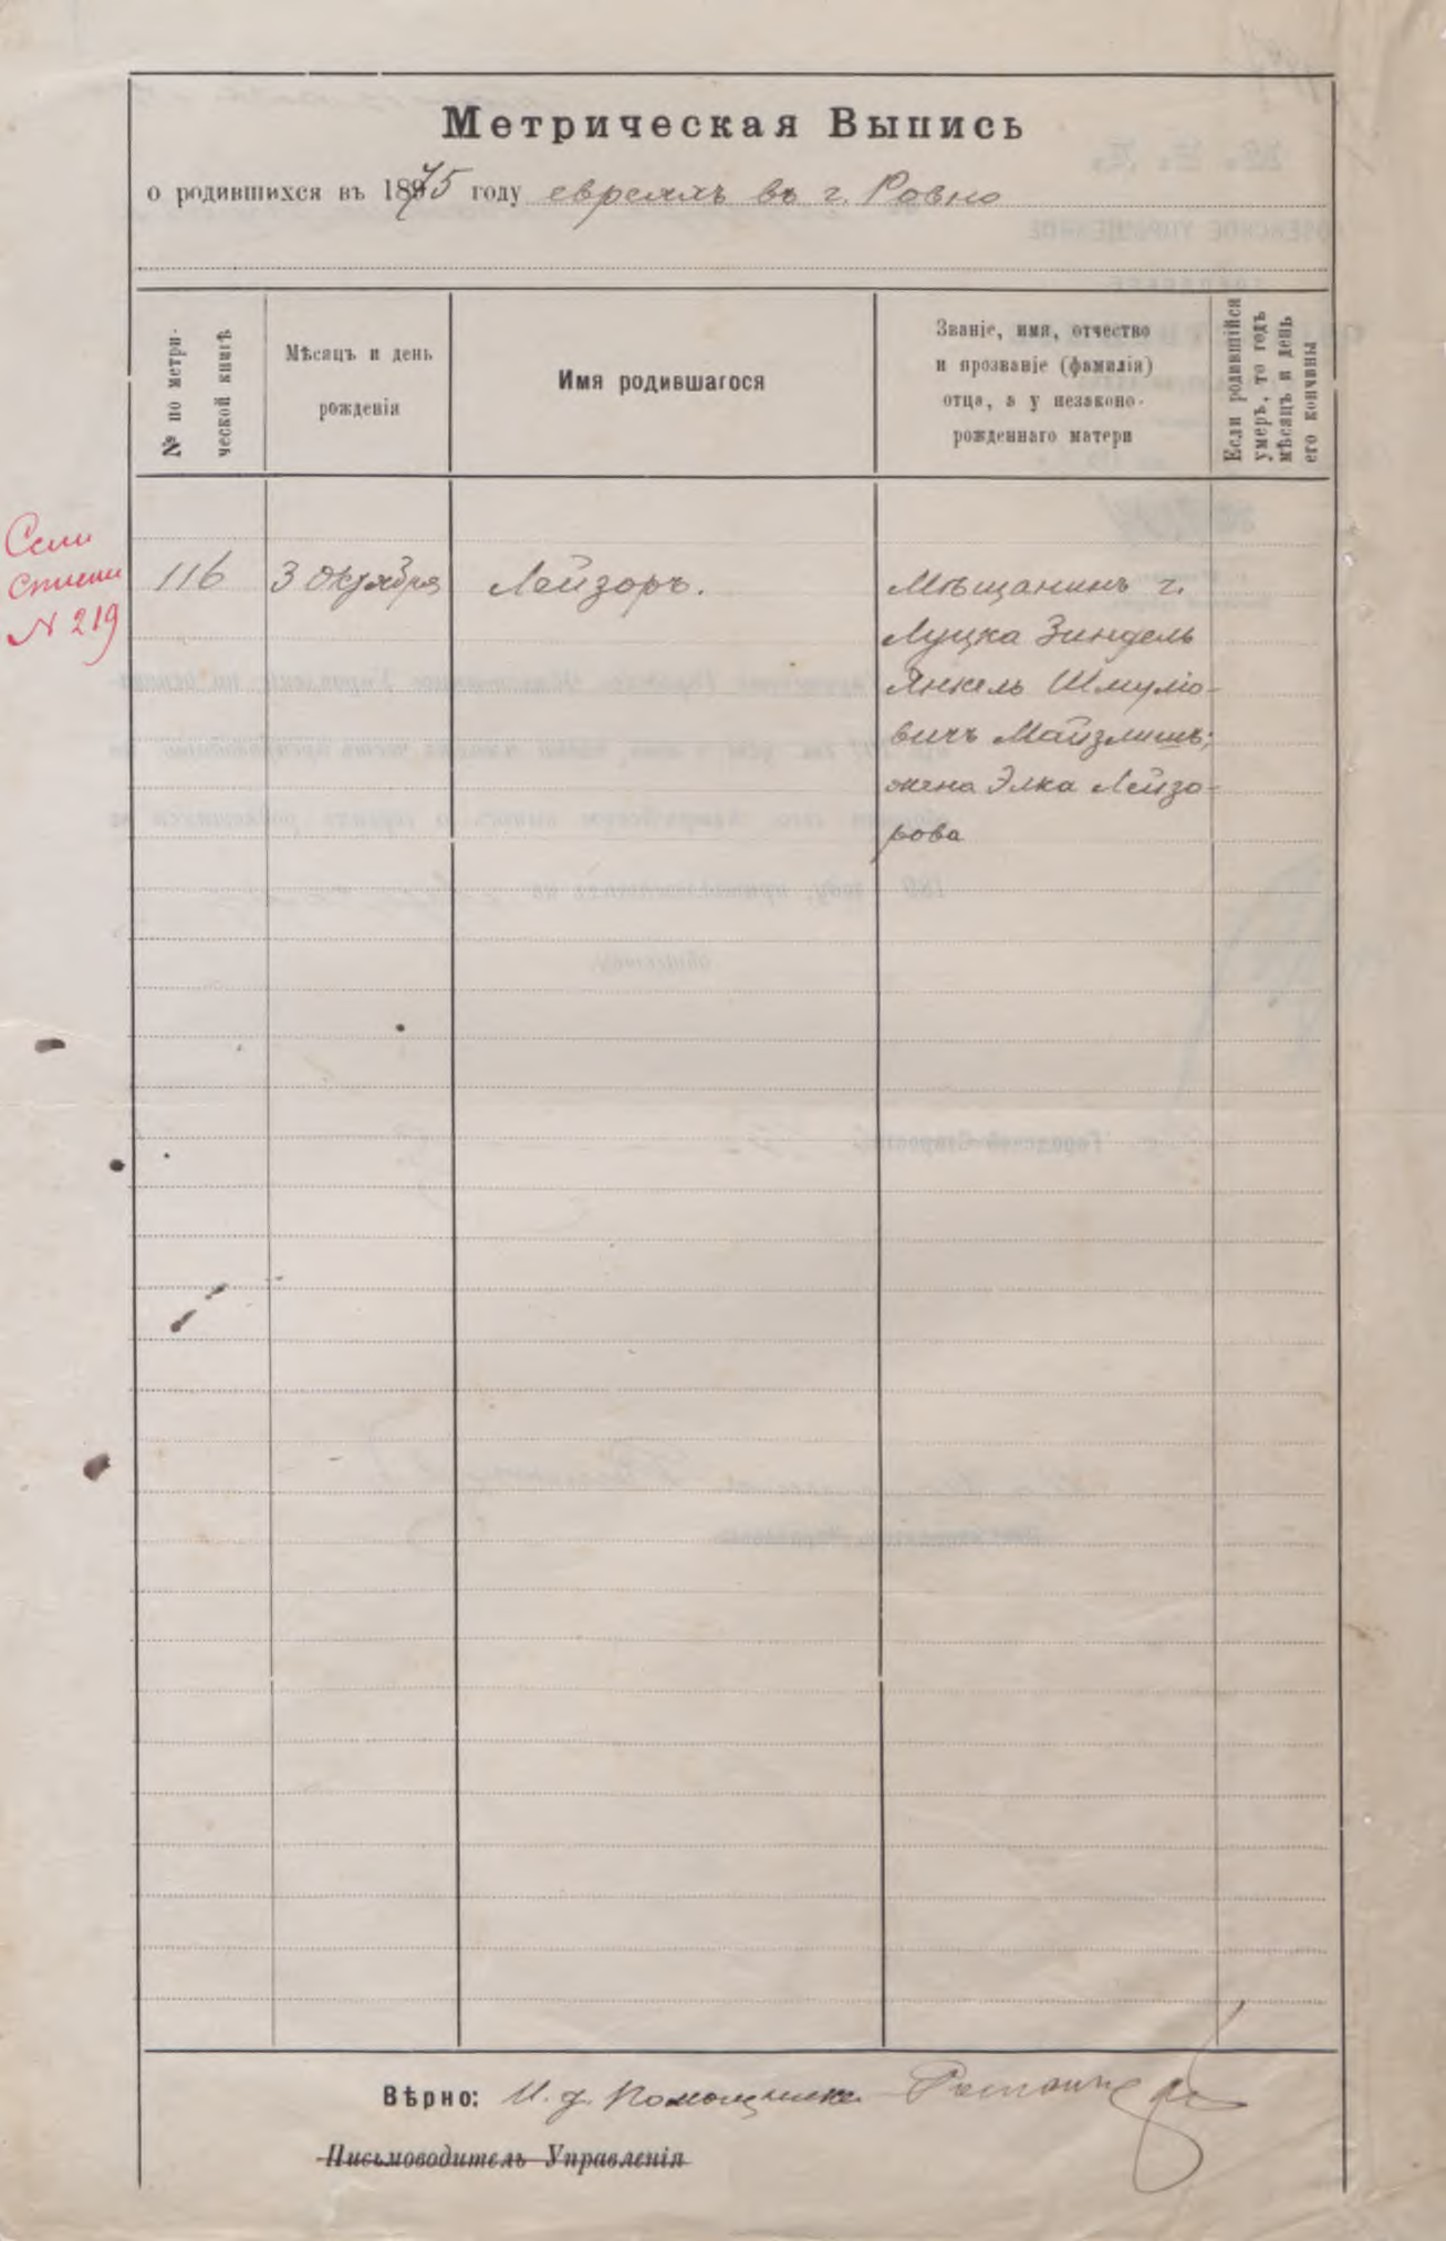 Метрическая Выпись
о родившихся въ 1875 году евреяхъ въ г. Ровно
№ по метри-
ческой книгѣ
Мѣсяцъ и день
рожденія
Имя родившагося
Званіе, имя, отчество
и прозваніе (фамилія)
отца, а у незаконо-
рожденнаго матери
Если родившійся
умеръ, то годъ
мѣсяцъ и день
его кончины
N 219
116
3 Октября
Лейзоръ.
Мѣщанинъ г.
Луцка Зиндель
Янкель Шмуліо-
вичъ Майзлишъ;
жена Элка Лейзо-
рова
Вѣрно: И. д. Помощника
Письмоводитель Управленія